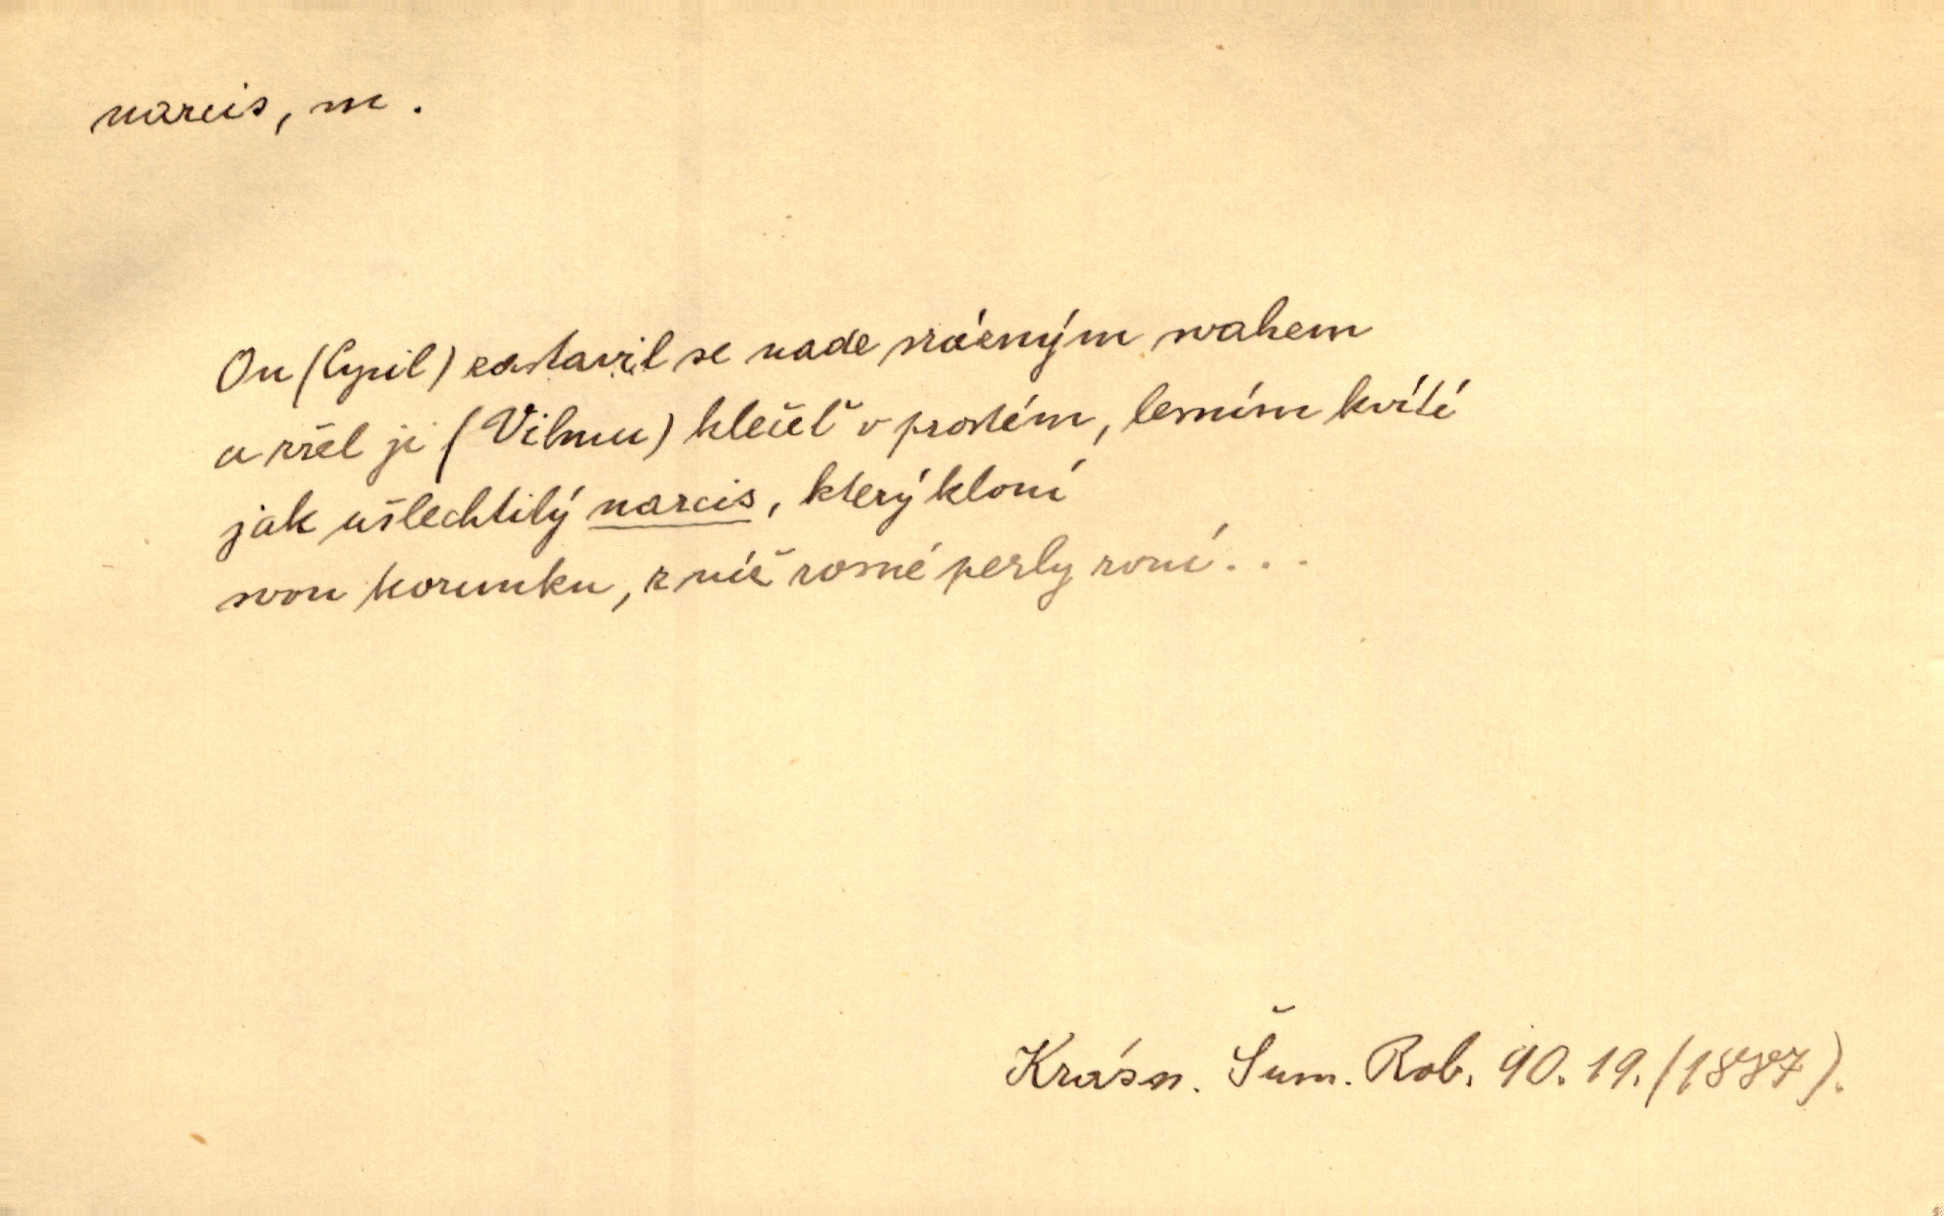 narcis, m.
On (Cyril) zastavil se nade srázným svahem
a zřel ji (Vilmu) klečeť v prostém, lesním kvítí
jak ušlechtilý narcis, který kloní
svou korunku, z níž rosné perly roní...
Krásn. Šum. Rob. 90. 19. (1887).